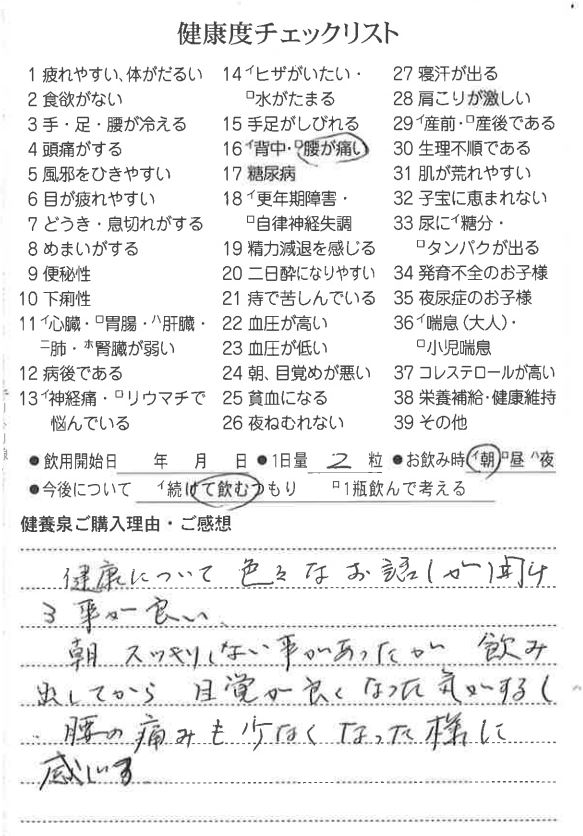 健康度チェックリスト
1 疲れやすい、体がだるい
2 食欲がない
3 手・足・腰が冷える
4 頭痛がする
5 風邪をひきやすい
6 目が疲れやすい
7 どうき・息切れがする
8 めまいがする
9 便秘性
10 下痢性
11 ｲ心臓・ﾛ胃腸・ﾊ肝臓・
ﾆ肺・ﾎ腎臓が弱い
12 病後である
13 ｲ神経痛・ﾛリウマチで
悩んでいる
14 ｲヒザがいたい・
ﾛ水がたまる
15 手足がしびれる
16 ｲ背中・ﾛ腰が痛い
17 糖尿病
18 ｲ更年期障害・
ﾛ自律神経失調
19 精力減退を感じる
20 二日酔になりやすい
21 痔で苦しんでいる
22 血圧が高い
23 血圧が低い
24 朝、目覚めが悪い
25 貧血になる
26 夜ねむれない
27 寝汗が出る
28 肩こりが激しい
29 ｲ産前・ﾛ産後である
30 生理不順である
31 肌が荒れやすい
32 子宝に恵まれない
33 尿にｲ糖分・
ﾛタンパクが出る
34 発育不全のお子様
35 夜尿症のお子様
36 ｲ喘息（大人）・
ﾛ小児喘息
37 コレステロールが高い
38 栄養補給・健康維持
39 その他
●飲用開始日 年 月 日 ●1日量 2 粒 ●お飲み時 ｲ朝 ﾛ昼 ﾊ夜
●今後について ｲ続けて飲むつもり ﾛ1瓶飲んで考える
健養泉ご購入理由・ご感想
健康について 色々なお話しが聞け
る事が良い、
朝 スッキリしない事があったが 飲み
出してから 目覚が良くなった気がするし
腰の痛みも少なくなった様に
感じる